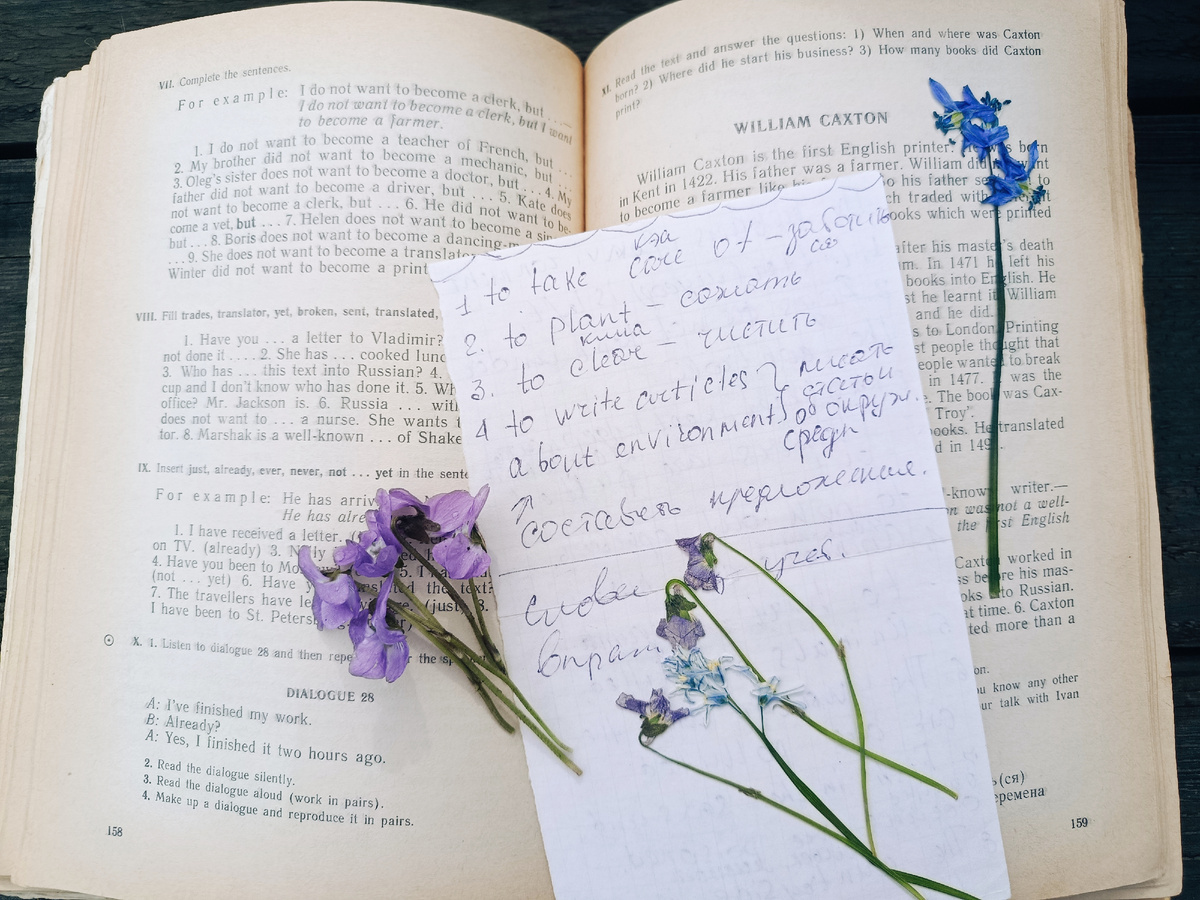 VII. Complete the sentences.
For example: I do not want to become a clerk, but ...
I do not want to become a clerk, but I want
to become a farmer.
1. I do not want to become a teacher of French, but ...
2. My brother did not want to become a mechanic, but ...
3. Oleg's sister does not want to become a doctor, but ... 4. My
father did not want to become a driver, but ... 5. Kate does
not want to become a clerk, but ... 6. He did not want to be-
come a vet, but ... 7. Helen does not want to become a
but ... 8. Boris does not want to become a
... 9. She does not want to become a
Winter did not want to become a
VIII. Fill trades, translator, yet, broken, sent, translated,
1. Have you ... a letter to Vladimir?
not done it .... 2. She has ... cooked
3. Who has ... this text into Russian? 4.
cup and I don't know who has done it. 5.
office? Mr. Jackson is. 6. Russia ...
does not want to ... a nurse. She wants
tor. 8. Marshak is a well-known ... of
IX. Insert just, already, ever, never, not ... yet in the
For example: He has
He has
1. I have received a letter.
on TV. (already) 3.
4. Have you been to
(not ... yet) 6. Have the text?
7. The travellers have
I have been to St.
X. 1. Listen to dialogue 28 and then for the
DIALOGUE 28
A: I've finished my work.
B: Already?
A: Yes, I finished it two hours ago.
2. Read the dialogue silently.
3. Read the dialogue aloud (work in pairs).
4. Make up a dialogue and reproduce it in pairs.
158
кэа
1 to take care of - заботить
ся
2. to plant - сажать
клиа
3. to clear - чистить
4 to write articles } писать
статьи
about environment об окруж.
среды
↑
составить предложение.
слова учег.
XI. Read the text and answer the questions: 1) When and where was Caxton
born? 2) Where did he start his business? 3) How many books did Caxton
print?
WILLIAM CAXTON
William Caxton is the first English printer. He was born
in Kent in 1422. His father was a farmer. William did want
to become a farmer like So his father to
traded with
books which were printed
after his master's death
In 1471 he left his
books into English. He
he learnt it. William
and he did.
to London. Printing
people thought that
people wanted to break
in 1477. I was the
The book was Cax-
Troy'.
books. He translated
in
writer.—
was not a well-
the first English
Caxton worked in
before his mas-
to Russian.
at time. 6. Caxton
more than a
know any other
talk with Ivan
(ся)
159